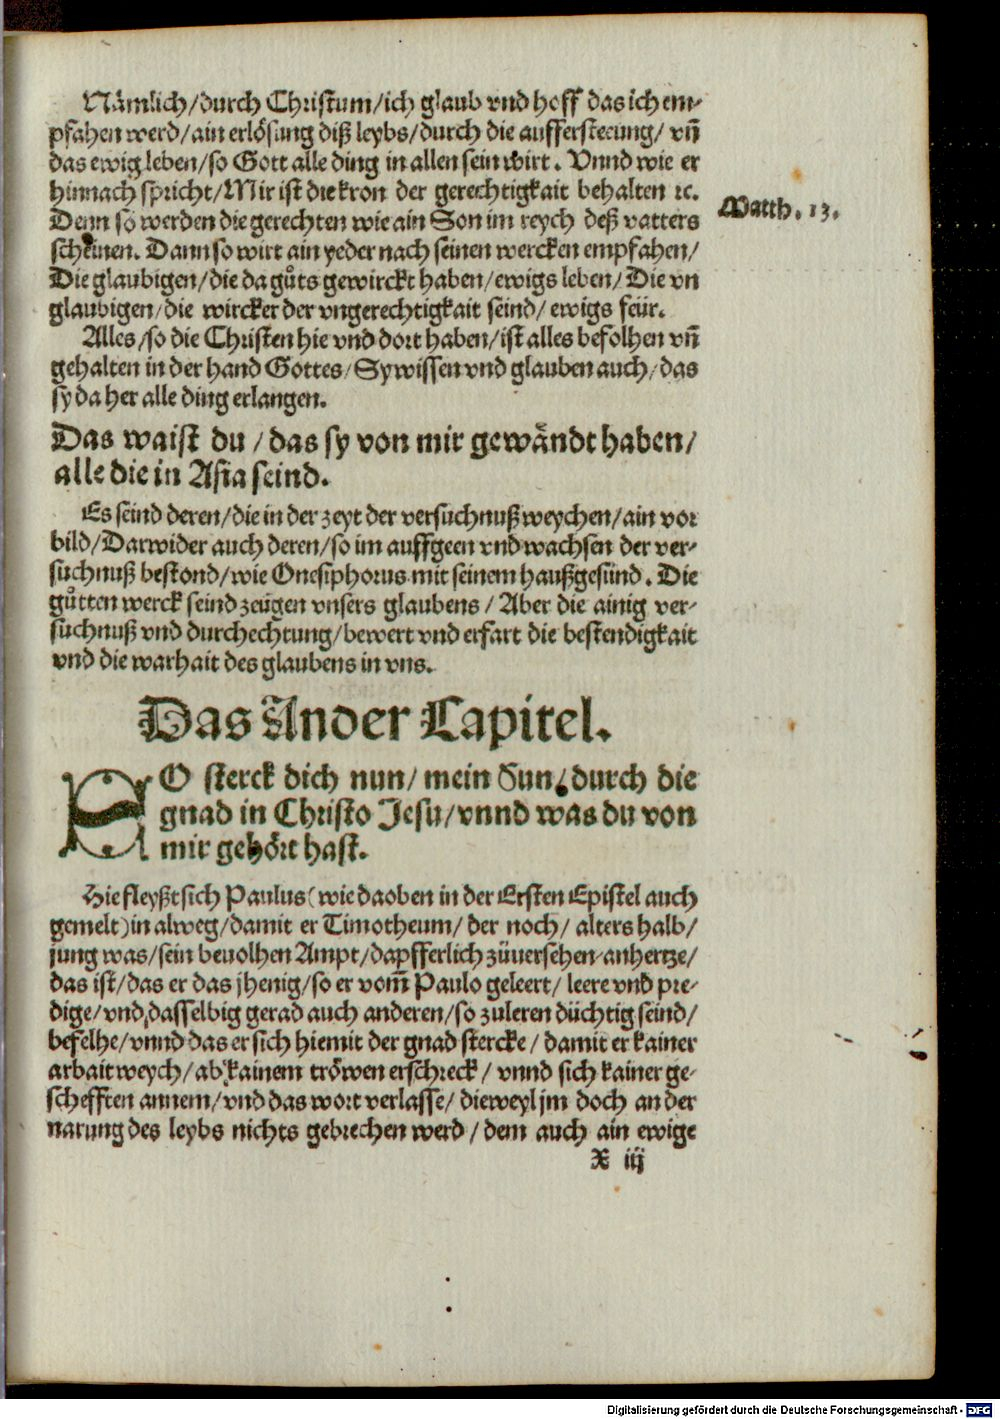 Nämlich/durch Christum/ich glaub vnd hoff das ich em-
pfahen werd/ain erlösung diß leybs/durch die aufferstecung/ vñ
das ewig leben/so Gott alle ding in allen sein wirt. Vnnd wie er
hinnach spricht/Mir ist die kron der gerechtigkait behalten ꝛc.
Denn so werden die gerechten wie ain Son im reych deß vatters
Matth. 13.
scheinen. Dann so wirt ain yeder nach seinen wercken empfahen/
Die glaubigen/die da gůts gewirckt haben/ewigs leben/Die vn
glaubigen/die wircker der vngerechtigkait seind/ewigs feür.
Alles/so die Christen hie vnd dort haben/ist alles befolhen vñ
gehalten in der hand Gottes/Sy wissen vnd glauben auch/das
sy da her alle ding erlangen.
Das waist du/das sy von mir gewändt haben/
alle die in Asia seind.
Es seind deren/die in der zeyt der versuchnuß weychen/ain vor
bild/Darwider auch deren/so im auffgeen vnd wachsen der ver-
suchnuß bestond/wie Onesiphorus mit seinem haußgesünd. Die
gůtten werck seind zeügen vnsers glaubens/Aber die ainig ver-
suchnuß vnd durchechtung/bewert vnd erfart die bestendigkait
vnd die warhait des glaubens in vns.
Das Ander Capitel.
SO sterck dich nun/mein Sun/durch die
gnad in Christo Jesu/vnnd was du von
mir gehört hast.
Hie fleyßt sich Paulus(wie da oben in der Ersten Epistel auch
gemelt)in alweg/damit er Timotheum/der noch/alters halb/
jung was/sein beuolhen Ampt/dapfferlich zůuersehen anhertze/
das ist/das er das jhenig/so er vom̃ Paulo geleert/leere vnd pre-
dige/vnd dasselbig gerad auch anderen/so zuleren düchtig seind/
befelhe/vnnd das er sich hiemit der gnad stercke/damit er kainer
arbait weych/ab kainem tröwen erschreck/vnnd sich kainer ge-
schefften annem/vnd das wort verlasse/dieweyl jm doch an der
narung des leybs nichts gebrechen werd/dem auch ain ewige
X iij
Digitalisierung gefördert durch die Deutsche Forschungsgemeinschaft - DFG